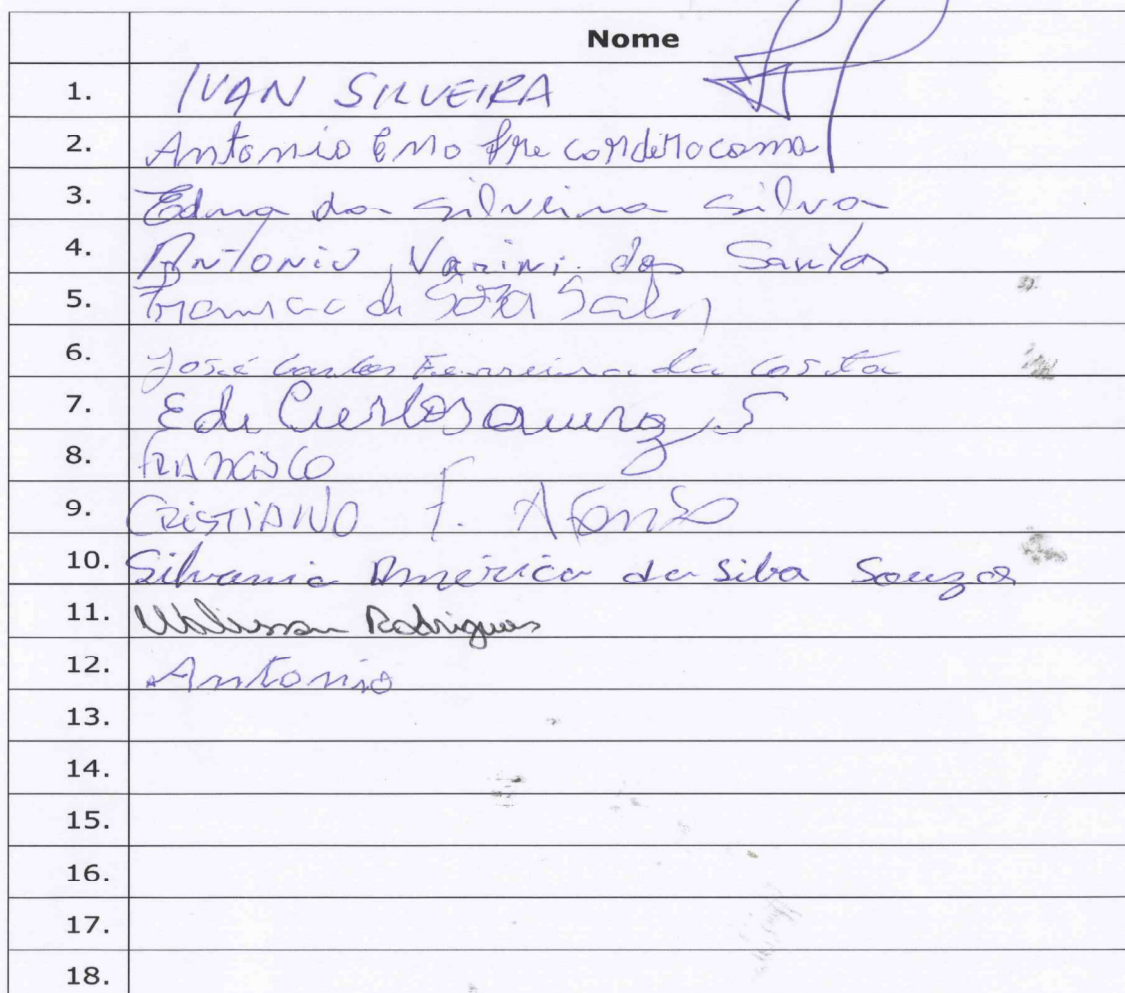 Nome
1. IVAN SILVEIRA
2. Antonio
3. Edna da silveira silva
4. Antonio Varini dos Santos
5. de
6. José Carlos Ferreira da Costa
7. Ede
8. FRANCISCO
9. CRISTIANO F. Afonso
10. Silvania America da Silva Souza
11. Rodrigues
12. Antonio
13.
14.
15.
16.
17.
18.